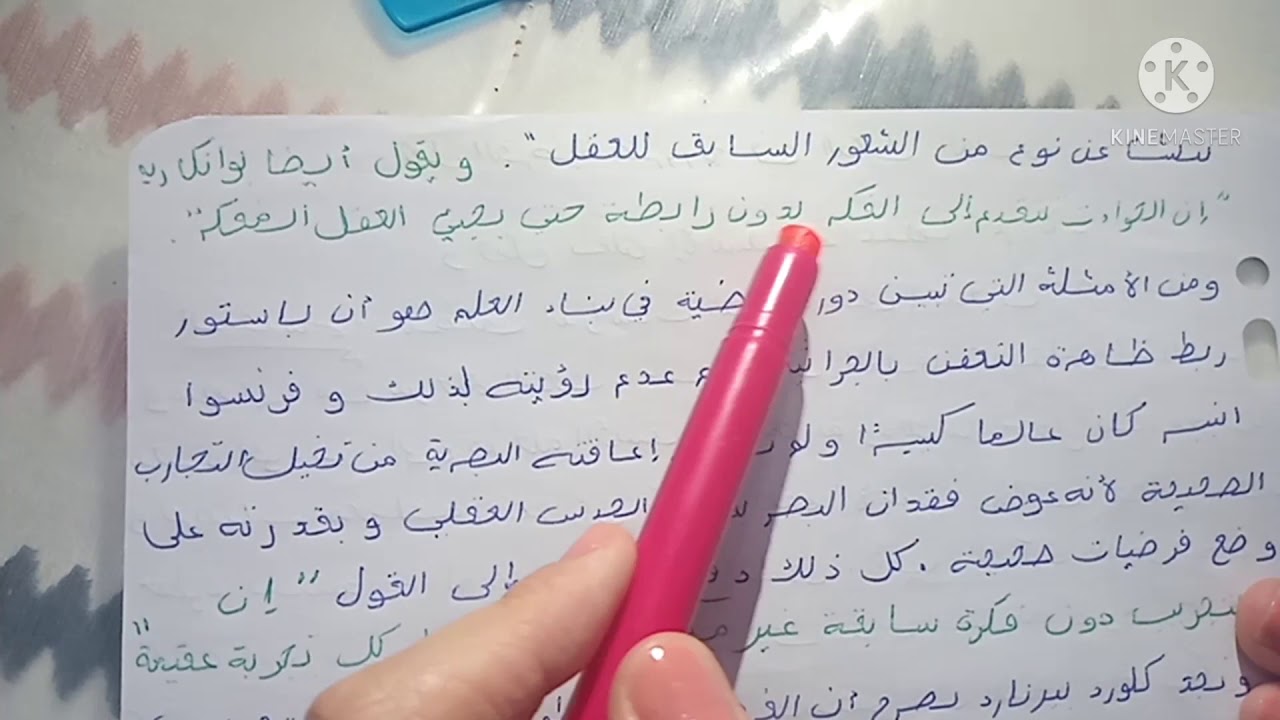 KINEMASTER
عن نوع من الشعور السابق للعقل". و يقول أيضا بوانكاريه
"إن الحوادث تتقدم إلى الفكر بدون رابطة حتى يجيئ العقل المفكر".
ومن الأمثلة التي تبين دور في بناء العلم هو أن باستور
ربط ظاهرة التعفن عدم رؤيته لذلك و فرنسوا
كان عالما كبيرا إعاقته البصرية من تخيل التجارب
الصحيحة لأنه عوض فقدان البصر الحدس العقلي و بقدرته على
وضع فرضيات صحيحة. كل ذلك إلى القول "إن
دون فكرة سابقة غير كل تجربة عقيمة"
و نجد كلورد برنارد يصرح أن